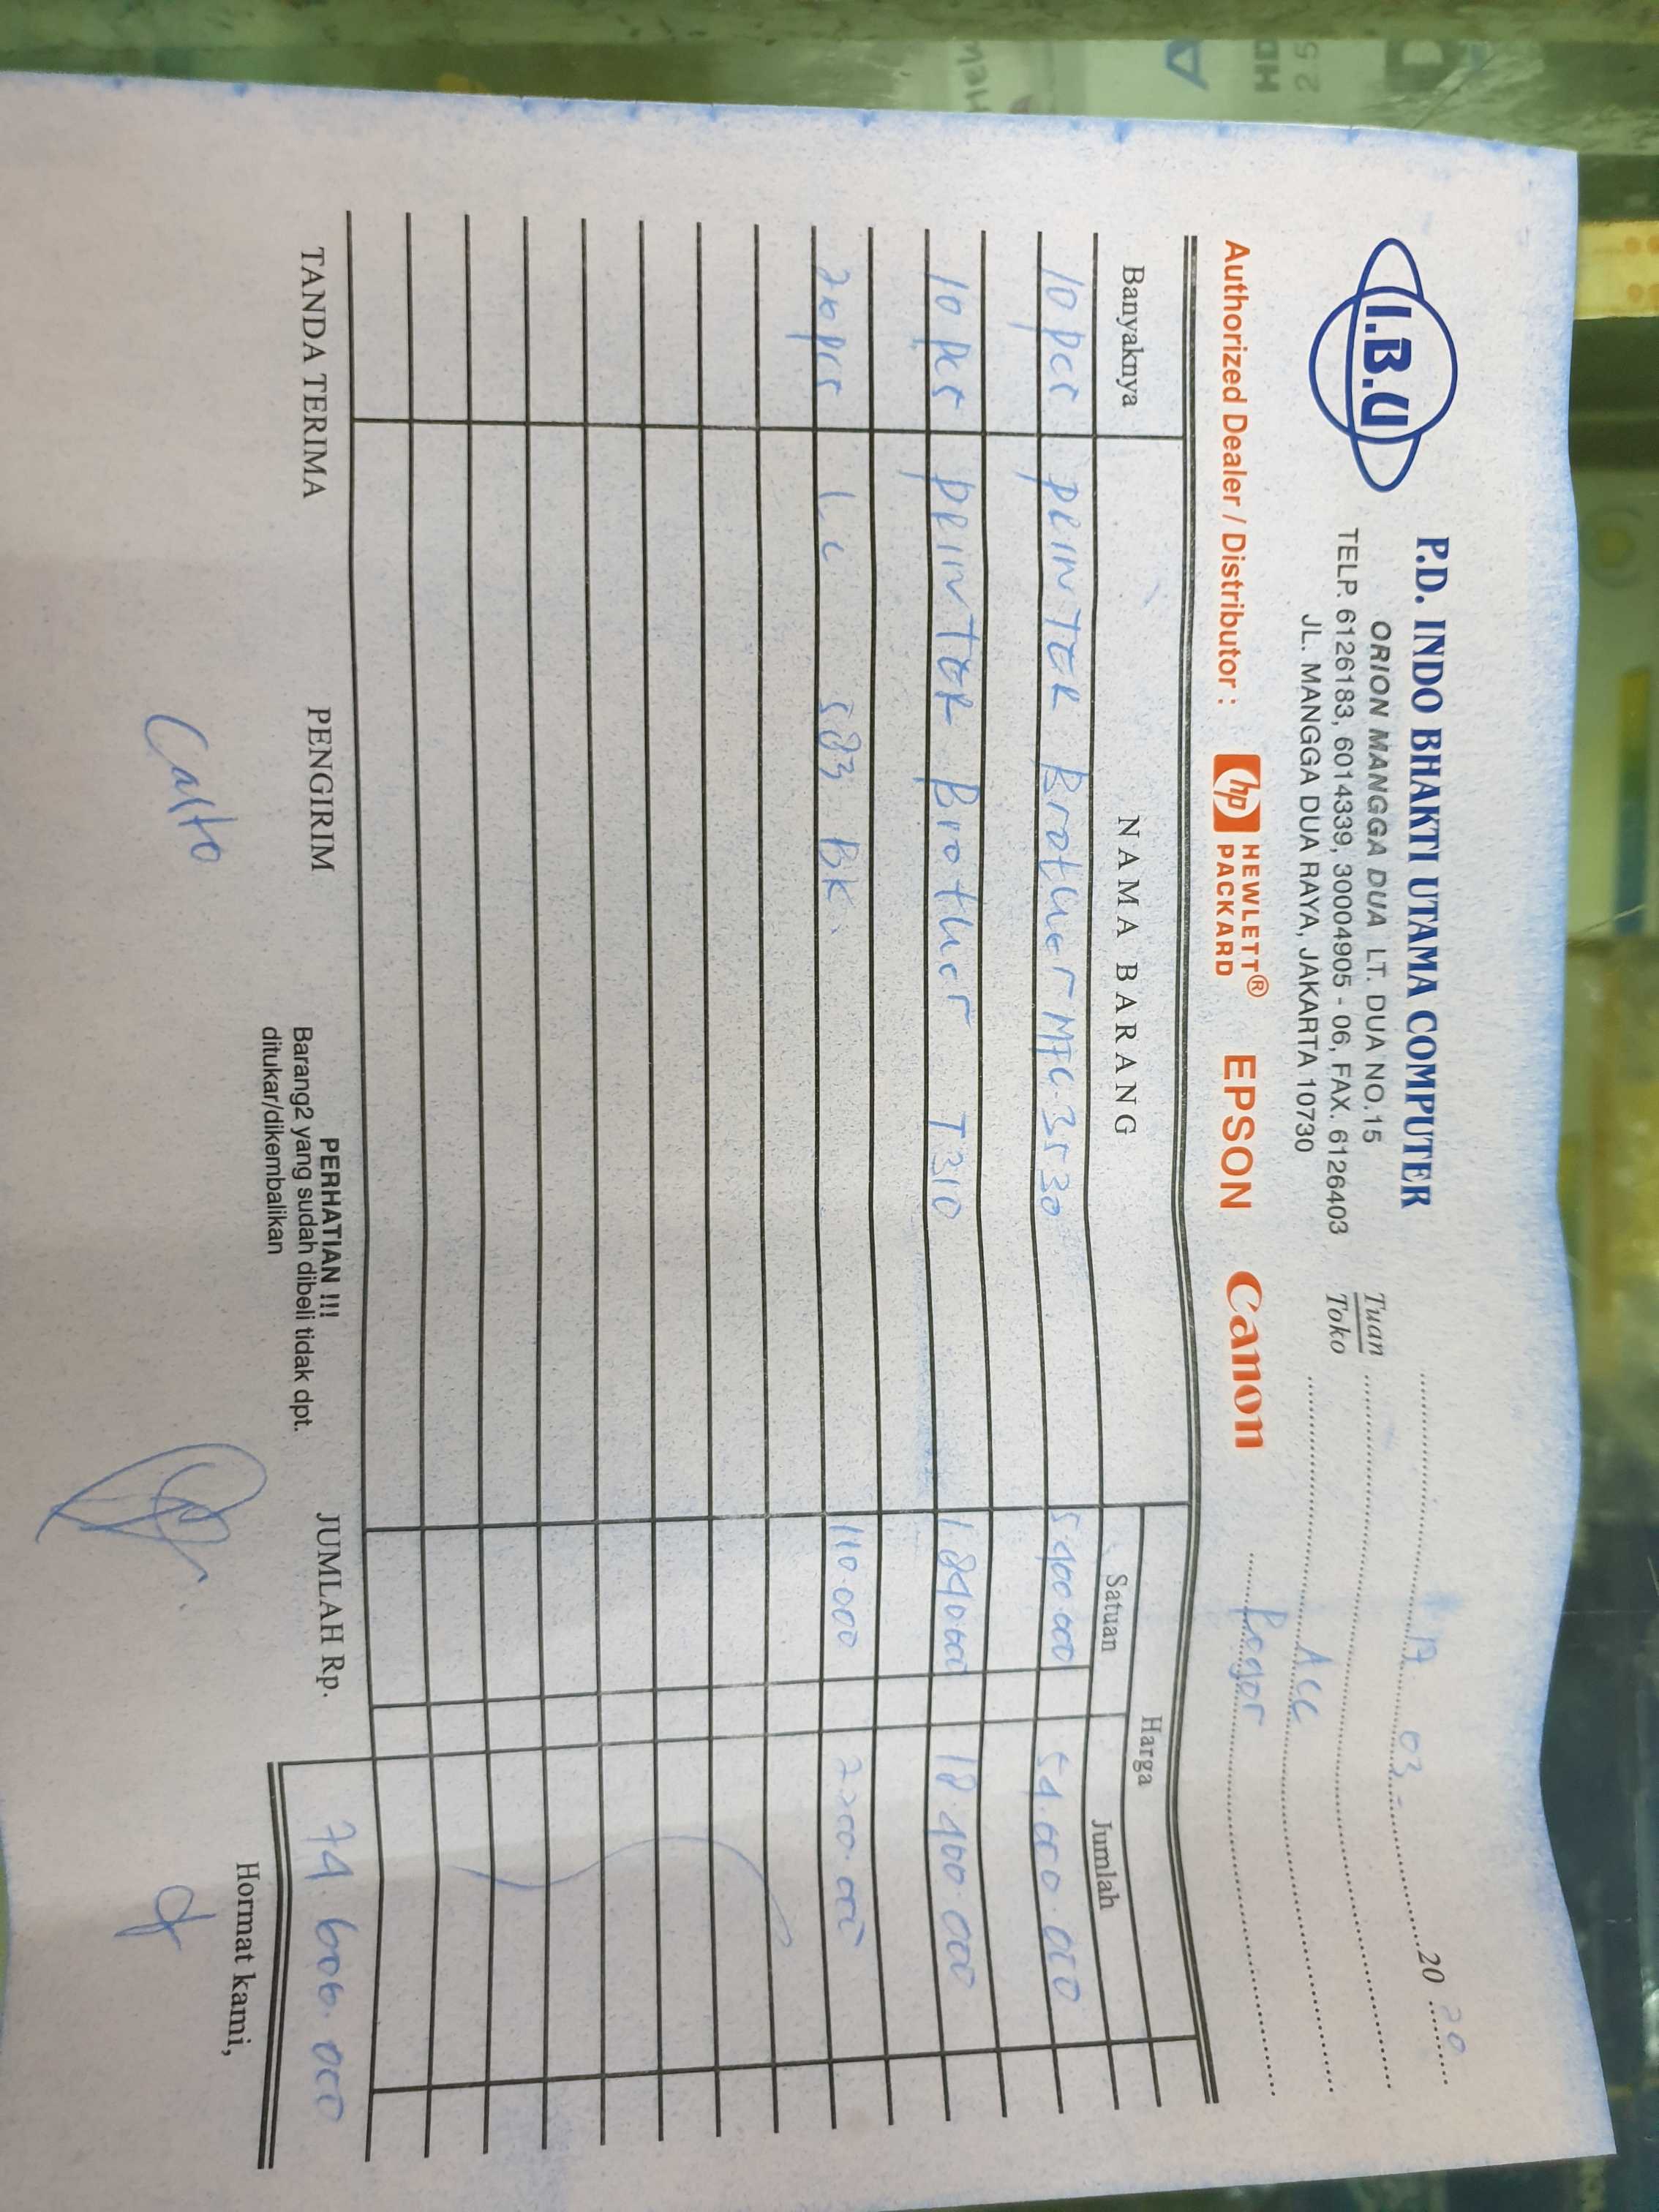 I.B.U
P.D. INDO BHAKTI UTAMA COMPUTER
ORION MANGGA DUA LT. DUA NO.15
TELP. 6126183, 6014339, 30004905 - 06, FAX. 6126403
JL. MANGGA DUA RAYA, JAKARTA 10730
03 - 20 20
Tuan
Toko
Acc
Authorized Dealer / Distributor : hp HEWLETT® PACKARD EPSON Canon
Banyaknya NAMA BARANG Harga
Satuan Jumlah
10 pcs PRINTER Brother MFC-3530 5.400.000 54.000.000
10 pcs PRINTER Brother T310 1.840.000 18.400.000
20 pcs LC 583 BK. 110.000 2200.000
TANDA TERIMA PENGIRIM PERHATIAN !!! JUMLAH Rp. 74.600.000
Barang2 yang sudah dibeli tidak dpt.
ditukar/dikembalikan
Hormat kami,